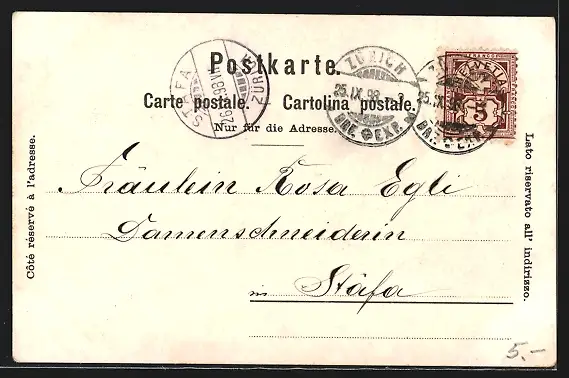 Postkarte.
Carte postale. Cartolina postale.
Nur für die Adresse.
Côté réservé à l'adresse.
Lato riservato all' indirizzo.
ZÜRICH
25.IX.98
BRF. EXP.
STÄFA
HELVETIA
5
Fräulein Rosa Egli
Damenschneiderin
in Stäfa
5.-